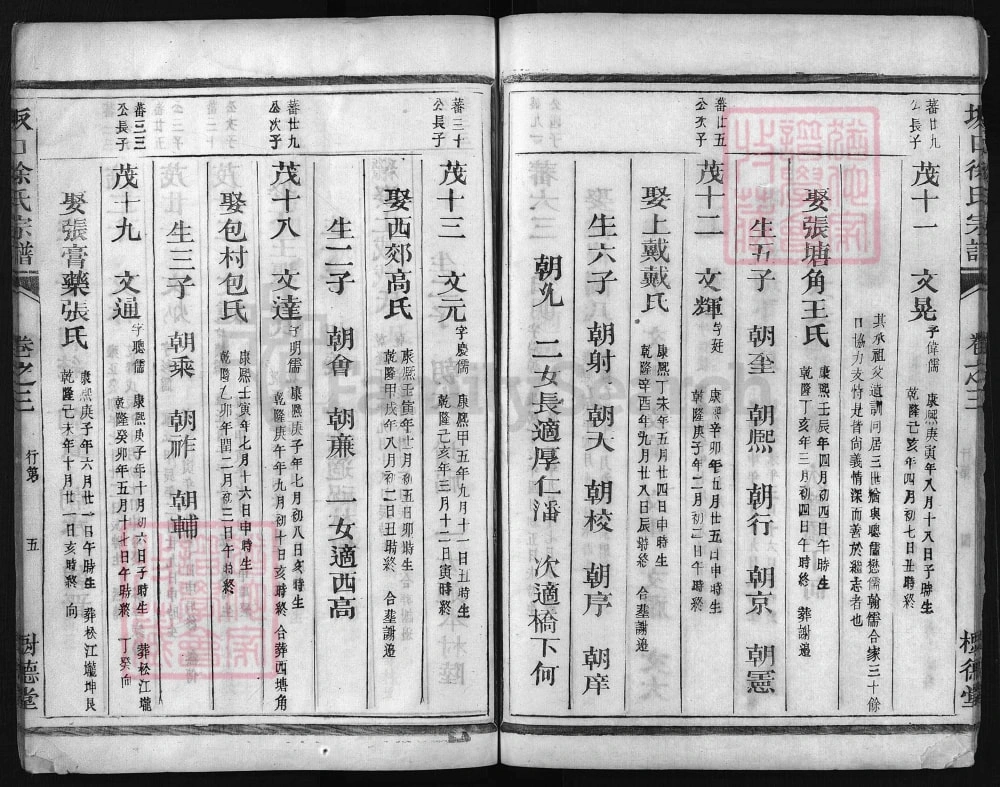 坂口徐氏宗譜
卷之三
樹德堂
蕃廿九
公長子
茂十一 文晃 字偉儒
康熙庚寅年八月十八日子時生
乾隆己亥年四月初七日丑時終
其承祖父遺訓同居三世惟與聰儒懋儒翰儒合家三十餘
口協力支竹是皆尚義情深而善於繼志者也
娶張塘角王氏
康熙壬辰年四月初四日午時生
乾隆丁亥年三月初四日午時終 葬謝邉
生五子 朝奎 朝熙 朝行 朝京 朝憲
蕃廿五
公次子
茂十二 文輝 字廷
康熙辛卯年五月廿五日申時生
乾隆庚子年二月初一日午時終
娶上戴戴氏
康熙丁未年五月廿四日申時生
乾隆辛酉年九月廿八日辰時終 合塟謝邉
生六子 朝射 朝大 朝校 朝序 朝庠
朝先 二女長適厚仁潘 次適橋下何
蕃三十
公長子
茂十三 文元 字慶儒
康熙甲五年九月十一日丑時生
乾隆己亥年三月十二日寅時終
娶西郊高氏
康熙壬寅年十二月初五日卯時生
乾隆甲戌年八月初二日丑時終 合塟謝邉
生二子 朝會 朝廉 一女適西高
蕃廿九
公次子
茂十八 文達 字明儒
康熙庚子年七月初八日亥時生
乾隆庚午年九月初十日亥時終 合葬西塘角
娶包村包氏
康熙壬寅年七月十六日申時生
乾隆乙卯年閏二月初二日午時終
生三子 朝乘 朝祚 朝輔
蕃三三
公長子
茂十九 文通 字聰儒
康熙庚子年十月初六日子時生
乾隆癸卯年五月十七日午時終 葬松江壠
丁癸向
娶張膏藥張氏
康熙庚子年六月廿一日午時生
乾隆己未年十月廿一日亥時終 葬松江壠坤艮
向
坂口徐氏宗譜
卷之三
行第
五
樹德堂